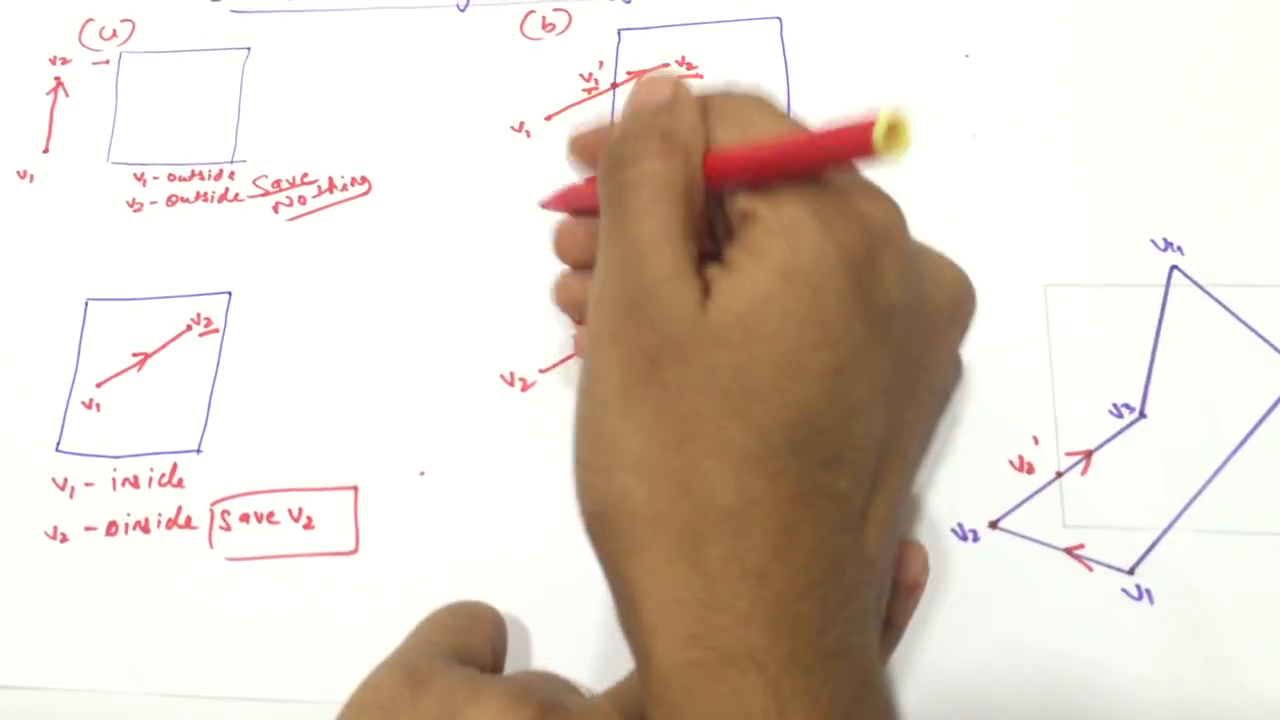 (a)
v2
v1
v1 - outside
v2 - outside Save Nothing
(b)
v1'
v2
v1
v2
v1
v1 - inside
v2 - inside Save v2
v2
v4
v3
v2'
v2
v1